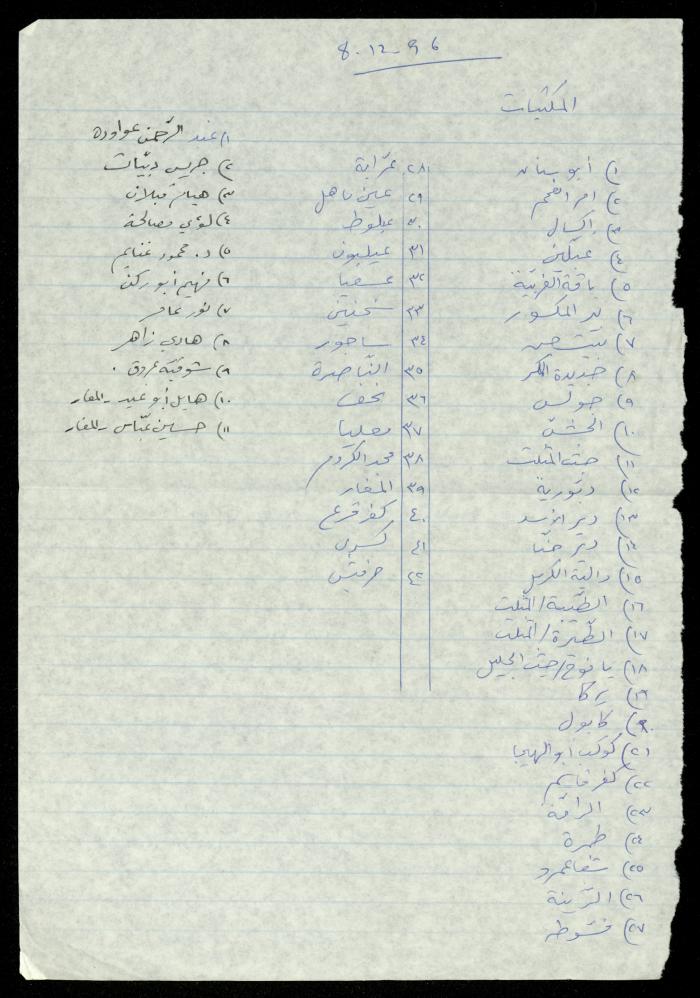 8.12.96
المكتبات
١) أبو سنان
٢) ام الفحم
٣) إكسال
٤) عبلين
٥) باقة الغربيّة
٦) بير المكسور
٧) بيت جن
٨) جديدة المكر
٩) جولس
١٠) الجشّ
١١) جتّ المثلث
١٢) دبّورية
١٣) دير الأسد
١٤) دير حنّا
١٥) دالية الكرمل
١٦) الطّيبة/المثلث
١٧) الطّيرة/المثلث
١٨) يانوح/جتّ الجليل
١٩) يركا
٢٠) كابول
٢١) كوكب أبو الهيجا
٢٢) كفر قاسم
٢٣) الرامّة
٢٤) طمرة
٢٥) شفاعمرو
٢٦) الرّينة
٢٧) فسّوطه
٢٨. عرّابة
٢٩ عين ماهل
٣٠ عيلوط
٣١ عيلبون
٣٢ عسفيا
٣٣ سخنين
٣٤ ساجور
٣٥ النّاصرة
٣٦ نحف
٣٧ معليا
٣٨ مجد الكروم
٣٩ المغار
٤٠ كفر قرع
٤١ كسرى
٤٢ حرفيش
١) عبد الرّحمن عواودة
٢) جريس دبيّات
٣) هيام قبلان
٤) لؤي مصالحة
٥) د. محمود غنايم
٦) فهيم أبو ركن
٧) نور عامر
٨) هادي زاهر
٩) شوقيّة عروق.
١٠) هايل أبو عبيد - المغار
١١) حسين عبّاس - المغار